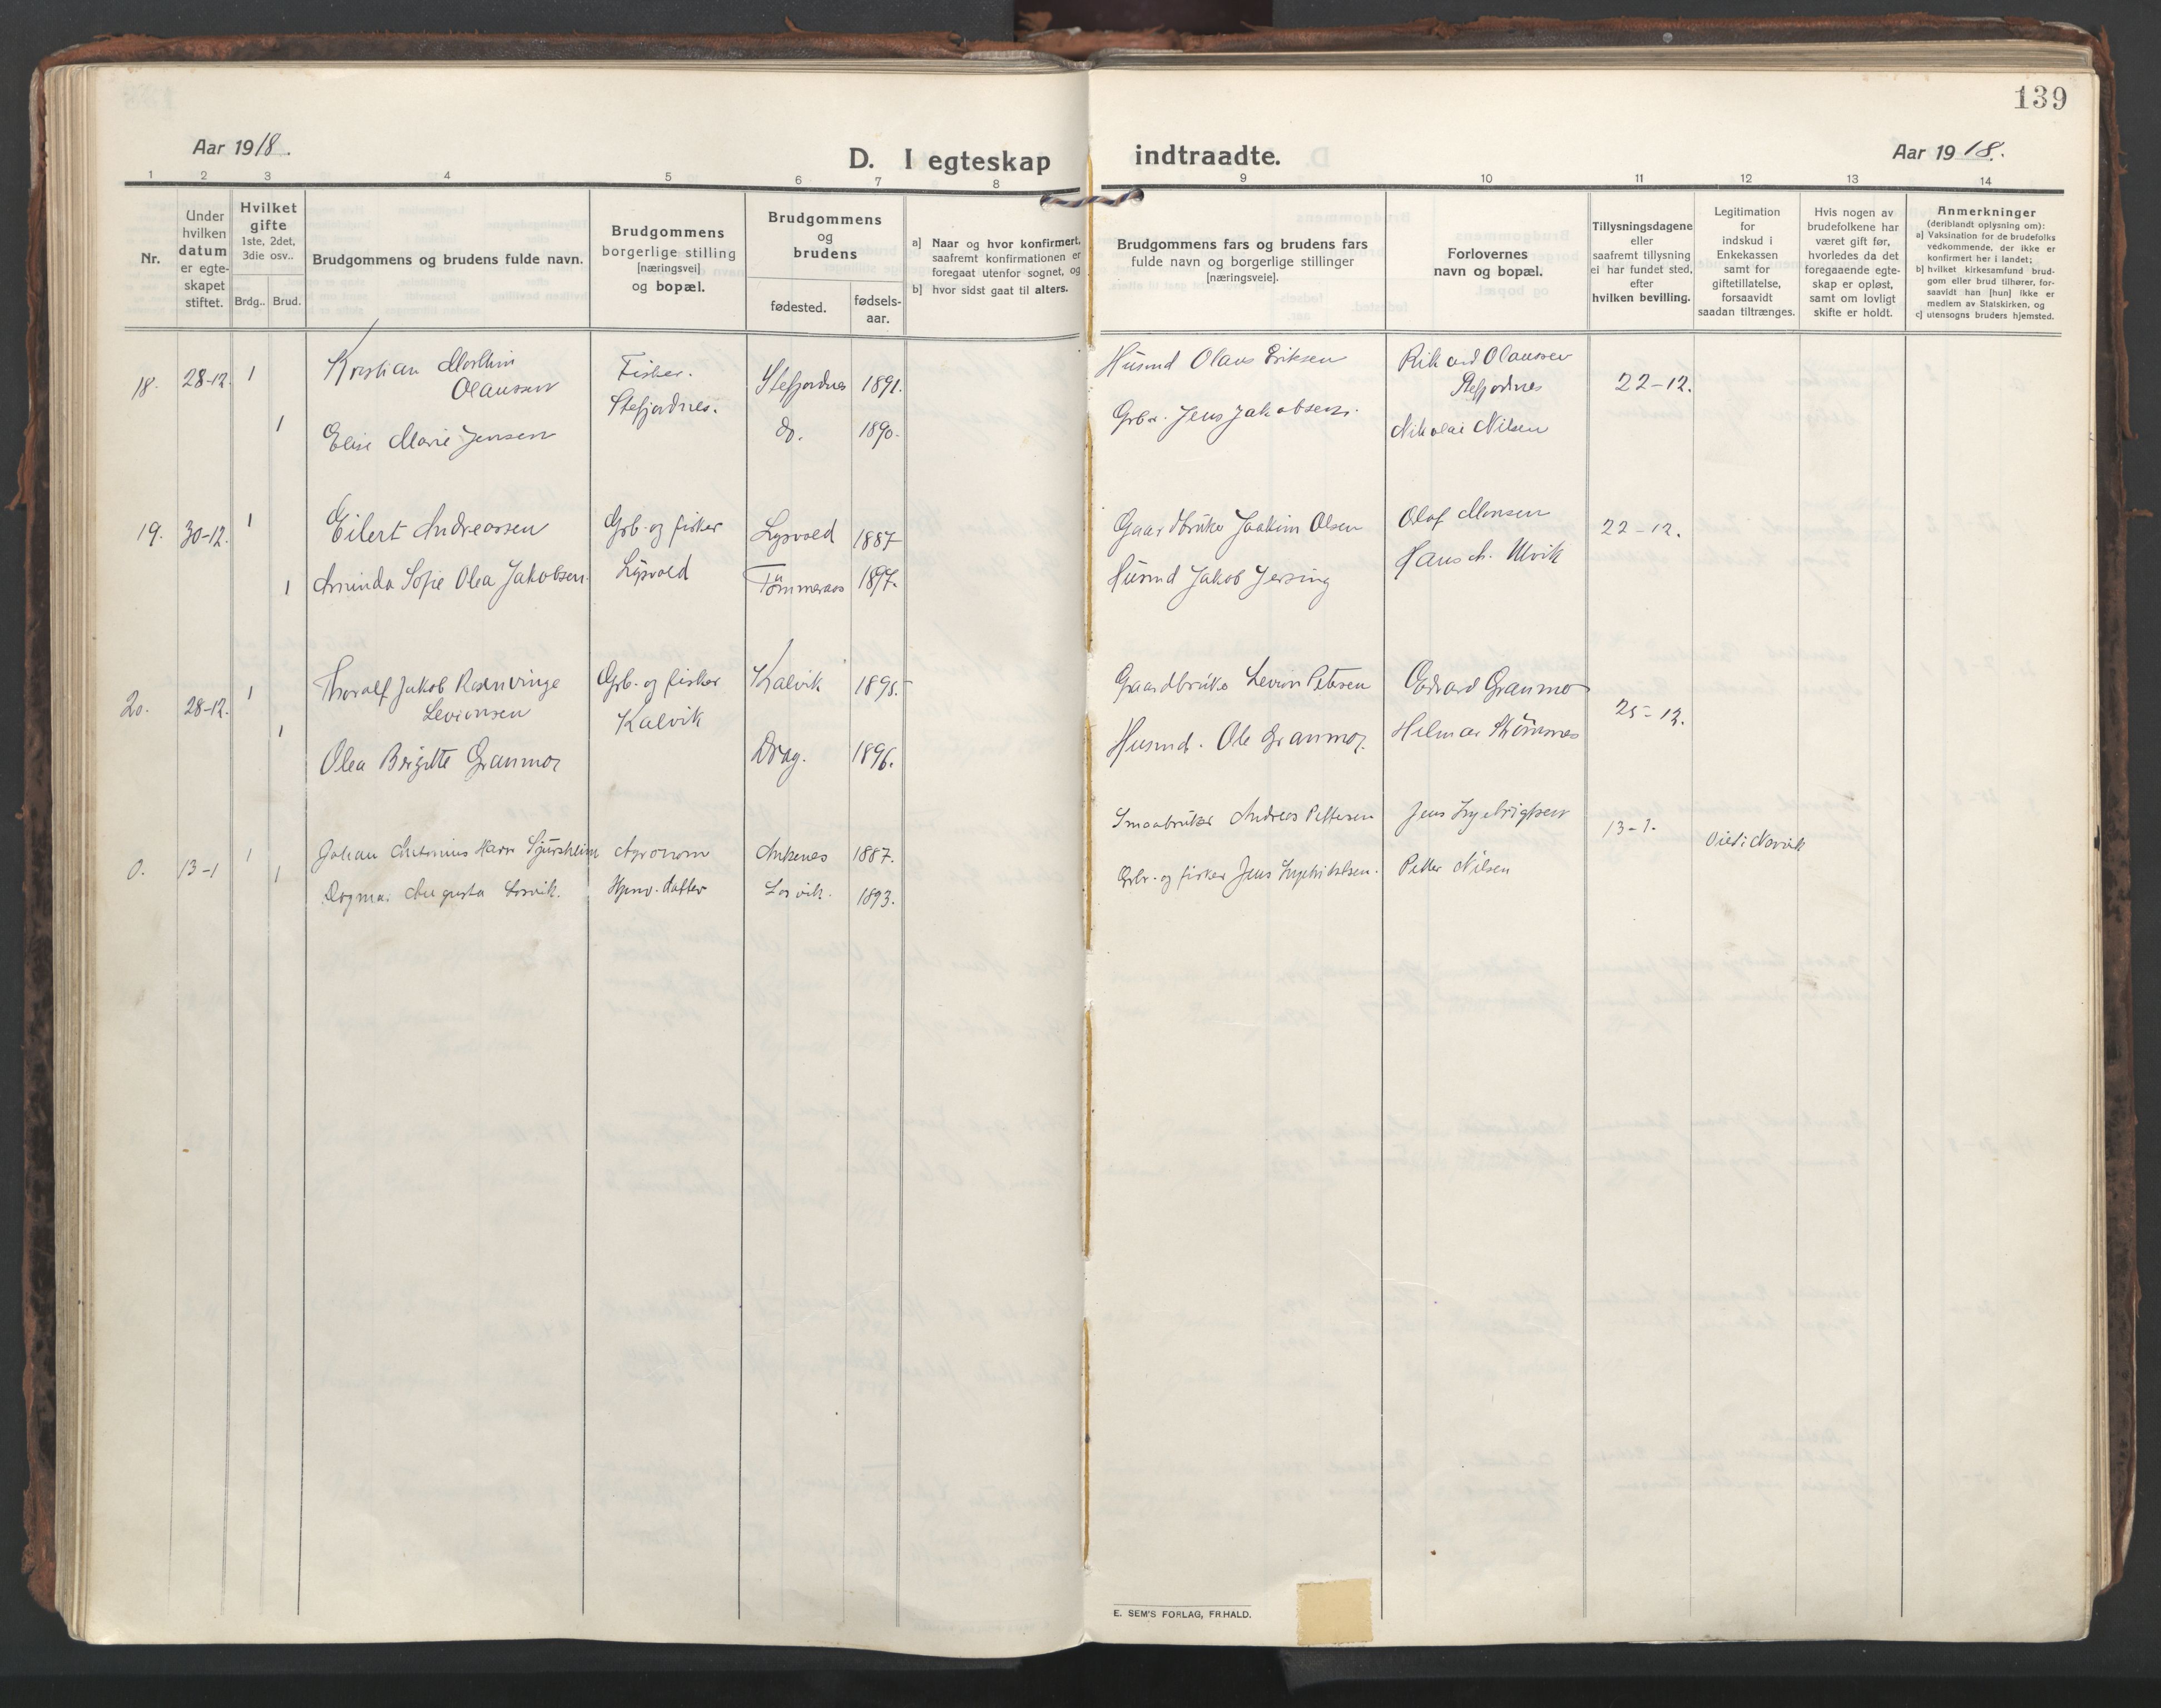 139
Aar 1918.
D. I egteskap indtraadte.
Aar 1918.
1 2 3 4 5 6 7 8 9 10 11 12 13 14
Nr.
Under
hvilken
datum
er egte-
skapet
stiftet.
Hvilket
gifte
1ste, 2det,
3die osv..
Brdg.. Brud.
Brudgommens og brudens fulde navn.
Brudgommens
borgerlige stilling
[næringsvei]
og bopæl.
Brudgommens
og
brudens
fødested.
fødsels-
aar.
a] Naar og hvor konfirmert,
saafremt konfirmationen er
foregaat utenfor sognet, og
b] hvor sidst gaat til alters.
Brudgommens fars og brudens fars
fulde navn og borgerlige stillinger
[næringsveie].
Forlovernes
navn og bopæl.
Tillysningsdagene
eller
saafremt tillysning
ei har fundet sted,
efter
hvilken bevilling.
Legitimation
for
indskud i
Enkekassen
samt for
giftetillatelse,
forsaavidt
saadan tiltrænges.
Hvis nogen av
brudefolkene har
været gift før,
hvorledes da det
foregaaende egte-
skap er opløst,
samt om lovligt
skifte er holdt.
Anmerkninger
(deriblandt oplysning om):
a] Vaksination for de brudefolks
vedkommende, der ikke er
konfirmert her i landet;
b] hvilket kirkesamfund brud-
gom eller brud tilhører, for-
saavidt han [hun] ikke er
medlem av Statskirken, og
c] utensogns bruders hjemsted.
18. 28-12. 1 Kristian Olaussen Fisker. Stefjordnes 1891. Husmd Olaus Eriksen Rikard Olaussen 22-12.
Stefjordnes. Stefjordnes
1 Elise Marie Jensen do. 1890. Grbr. Jens Jakobsen. Nikolai Nilsen
19. 30-12. 1 Eilert Andreassen Grb. og fisker Lysvold 1887 Gaardbruker Joakim Olsen Olaf Monsen 22-12.
1 Aminda Sofie Olea Jakobsen. Lysvold Tømmeraas 1897. Husmd Jakob Jersing Hans A. Ulvik
20. 28-12. 1 Thoralf Jakob Rosenvinge Grb. og fisker Kalvik 1895. Gaardbruker Levin Petersen Edvard Granmo 25-12.
Levionsen Kalvik
1 Olea Birgitte Granmo Drag. 1896. Husmd. Ole Granmo. Hilmar Strømnes
0. 13-1 1 Johan Antonius Harr Sjursheim Agronom Ankenes 1887. Smaabruker Andreas Pettersen Jens Ingebrigtsen 13-1. Viet i Narvik
1 Dagmar Augusta Losvik. datter Losvik. 1893. Grbr. og fisker Jens Ingebrigtsen. Petter Nilsen
E. SEM'S FORLAG, FR.HALD.